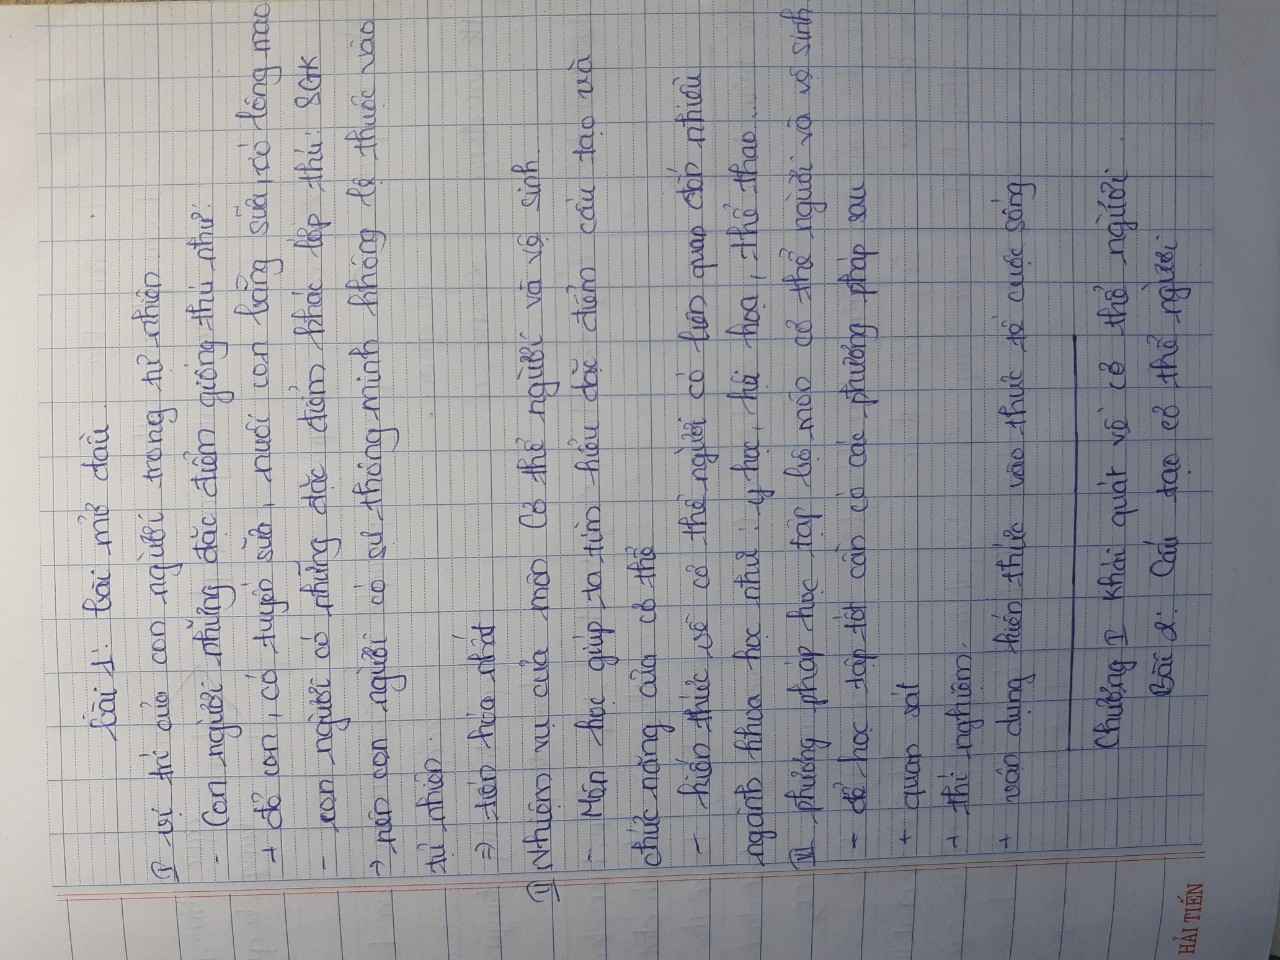 bài 1: bài mở đầu.
I vị trí của con người trong tự nhiên.
- Con người những đặc điểm giống thú như:
+ đẻ con, có tuyến sữa, nuôi con bằng sữa, có lông mao
- con người có những đặc điểm khác lớp thú: SGK
→ nên con người có sự thông minh không lệ thuộc vào
tự nhiên.
⇒ tiến hóa nhất
II Nhiệm vụ của môn cơ thể người và vệ sinh.
- Môn học giúp ta tìm hiểu đặc điểm cấu tạo và
chức năng của cơ thể
- kiến thức về cơ thể người có liên quan đến nhiều
ngành khoa học như: y học, hội họa, thể thao...
III phương pháp học tập bộ môn cơ thể người và vệ sinh
- để học tập tốt cần có các phương pháp sau
+ quan sát
+ thí nghiệm.
+ vận dụng kiến thức vào thực tế cuộc sống
Chương I khái quát về cơ thể người.
Bài 2: Cấu tạo cơ thể người
HẢI TIẾN